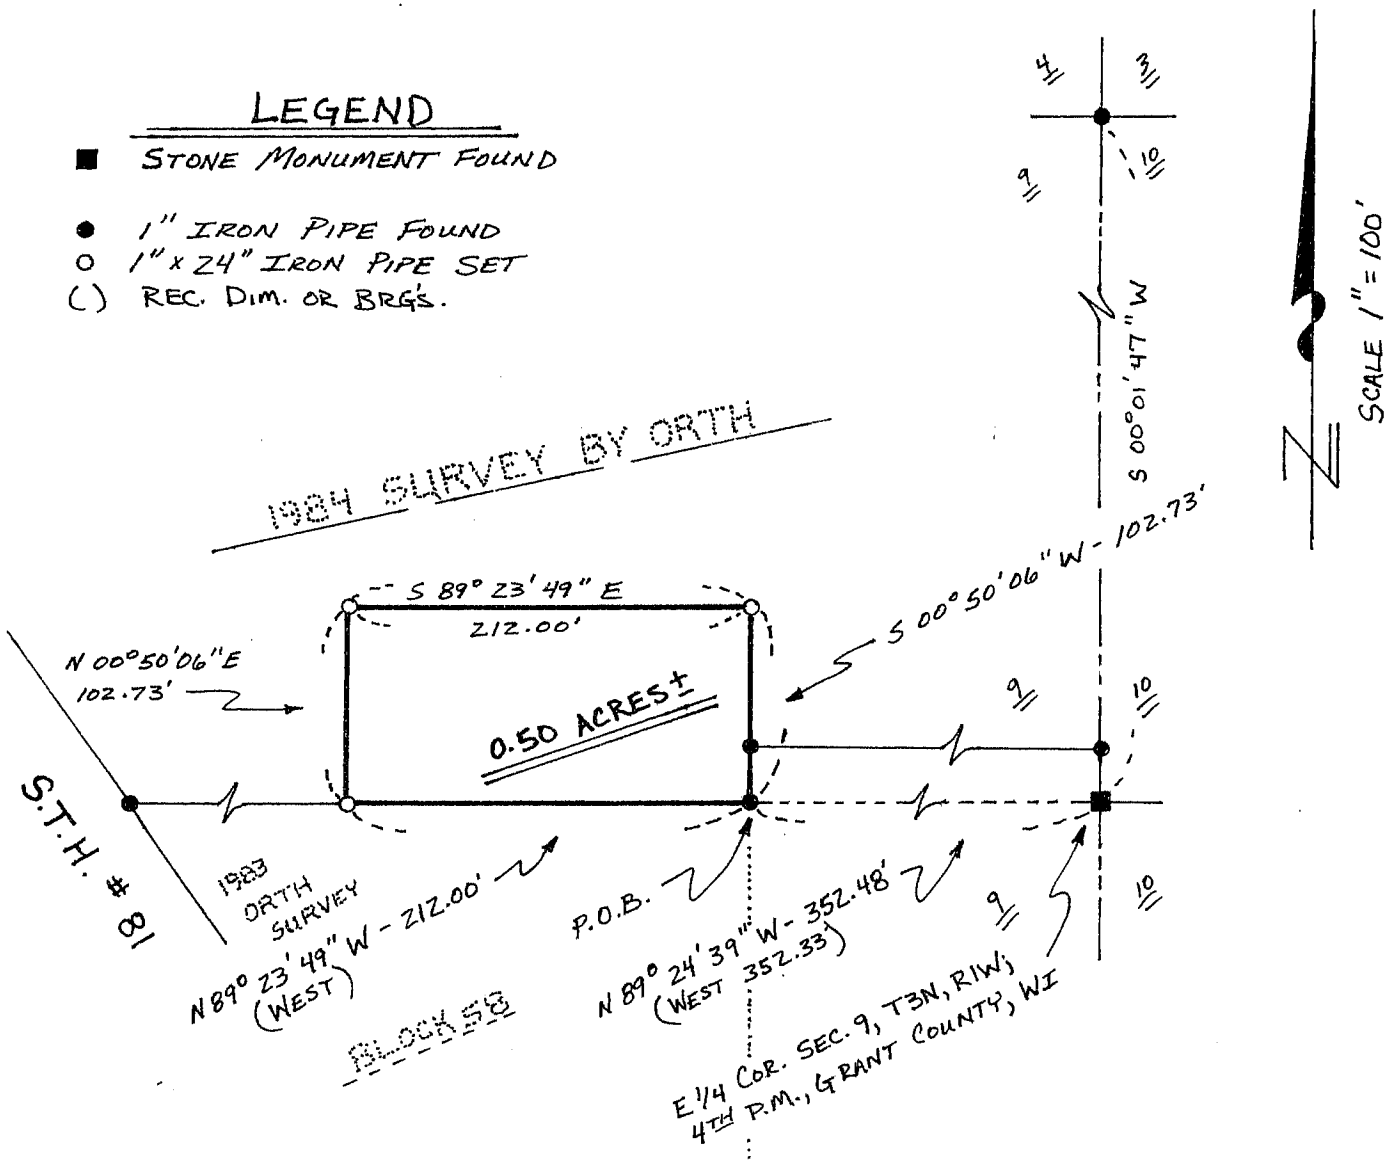 LEGEND
STONE MONUMENT FOUND
1" IRON PIPE FOUND
1" x 24" IRON PIPE SET
( ) REC. DIM. OR BRG'S.
4 3
9 10
S 00° 01' 47" W
SCALE 1" = 100'
N
1984 SURVEY BY ORTH
S 89° 23' 49" E
212.00'
S 00° 50' 06" W - 102.73'
N 00° 50' 06" E
102.73'
0.50 ACRES ±
9 10
S.T.H. # 81
1983
ORTH
SURVEY
N 89° 23' 49" W - 212.00'
(WEST)
BLOCK 58
P.O.B.
N 89° 24' 39" W - 352.48'
(WEST 352.33')
9 10
E 1/4 COR. SEC. 9, T3N, R1W,
4TH P.M., GRANT COUNTY, WI